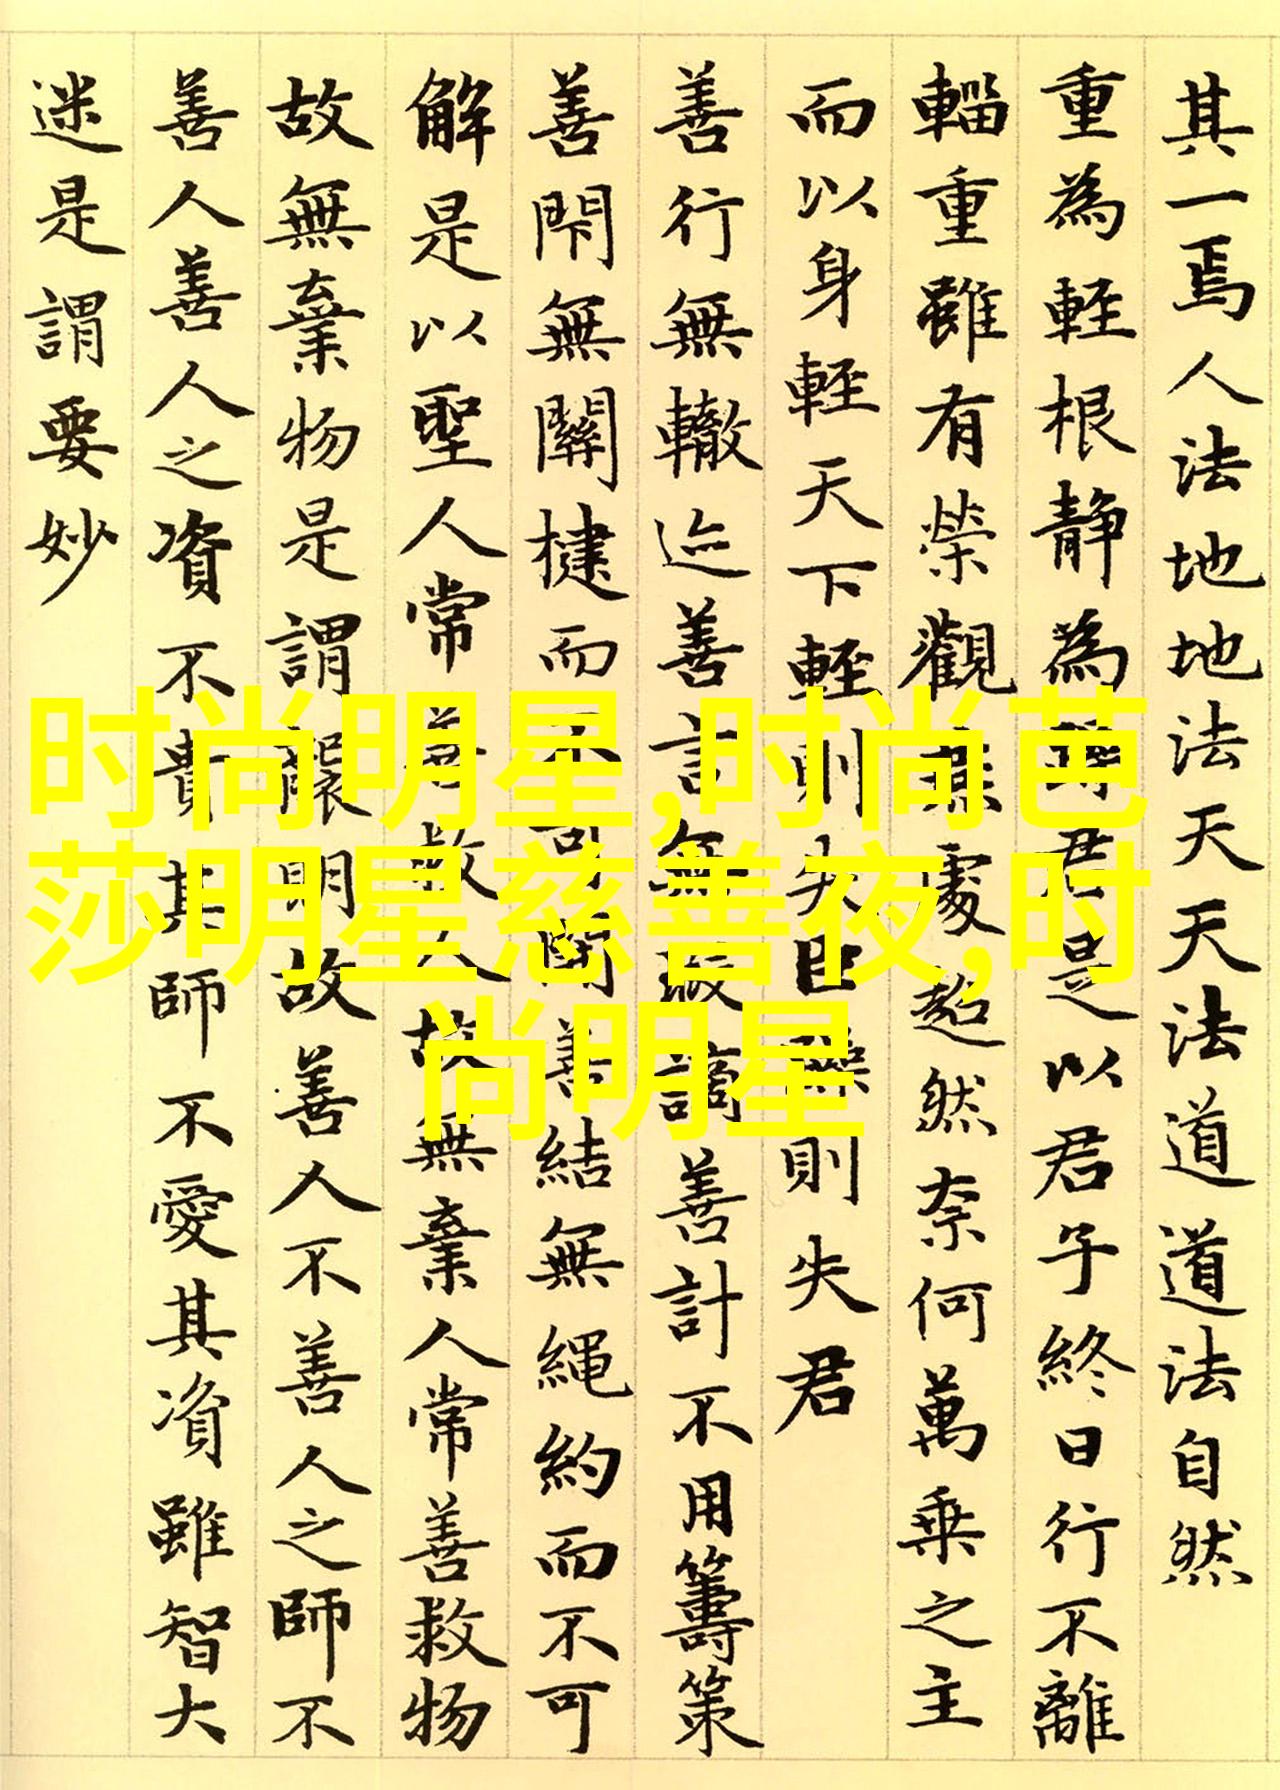 其一焉人法地地法天天法道道法自然
重為輕根靜為躁君是以君子終日行不離
輜重雖有榮觀燕處超然奈何萬乘之主
而以身輕天下輕則失臣躁則失君
善行無轍迹善言無瑕謫善計不用籌策
善閇無關楗而不可開善結無繩約而不可
解是以聖人常善救人故無棄人常善救物
故無棄物是謂襲明故善人不善人之師不
善人善人之資不貴其師不愛其資雖智大
迷是謂要妙
时尚明星,时尚芭
莎明星慈善夜,时
尚明星